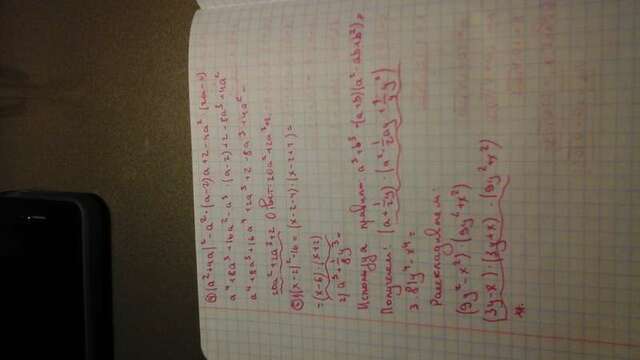 ④ (a²+4a)²-a²·(a-2)a+2-4a²·(2a-1)
a⁴+8a³+16a²-a³·(a-2)+2-8a³+4a²
a⁴+8a³+16a²-a⁴+2a³+2-8a³+4a²=
20a²+2a³+2 Ответ: 20a²+2a³+2.
⑤ 1)(x-2)²-16=(x-2-4)·(x-2+4)=
=(x-6)·(x+2)
2) a³+1/8y³=
Используя правило a³+b³=(a+b)(a²-ab+b²),
Получаем: (a+1/2y)·(a²-1/2ay+1/4y²)
3. 81y⁴-x⁴=
Раскладываем:
(9y²-x²)·(9y²+x²)
(3y-x)·(3y+x)·(9y²+x²)